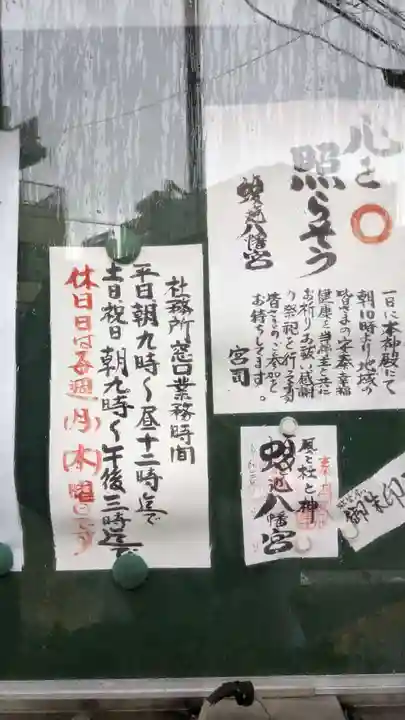 心を
照らそう
蛇池八幡宮
一日に本神殿にて
朝10時より地域の
皆さまの安泰幸福
健康を当宮主と共に
お祈りお祓い感謝
り祭祀を行います
皆さまのご参加を
お待ちしてます。
宮司
社務所窓口業務時間
平日朝九時〜昼十二時迄で
土日祝日朝九時〜午後三時迄で
休日日は毎週(月)(木)曜日です
風と杜と神
八幡宮
御朱印